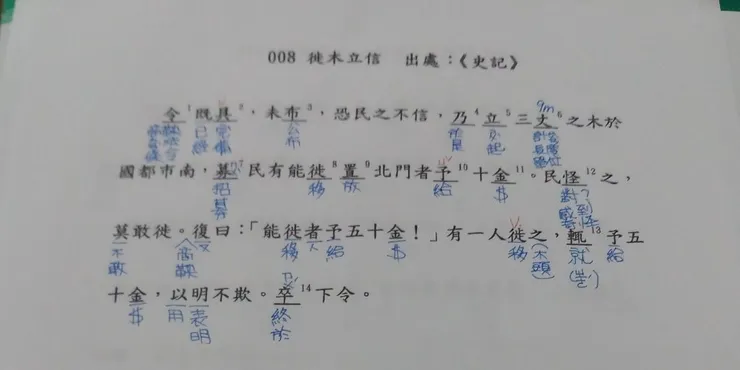 008 徙木立信 出處：《史記》
令1既具2，未布3，恐民之不信，乃4立5三丈6之木於
9m
已經 完備 公布 於是 立起
國都市南，募7民有能徙8置9北門者予10十金11。民怪12之，
招募 移 放 給 $ 對?感到奇怪
莫敢徙。復曰：「能徙者予五十金！」有一人徙之，輒13予五
不敢 又 移 人 給 $ 移 (木頭) 就 給
十金，以明不欺。卒14下令。
(ㄓㄜˊ)
$ 用 表明 終於